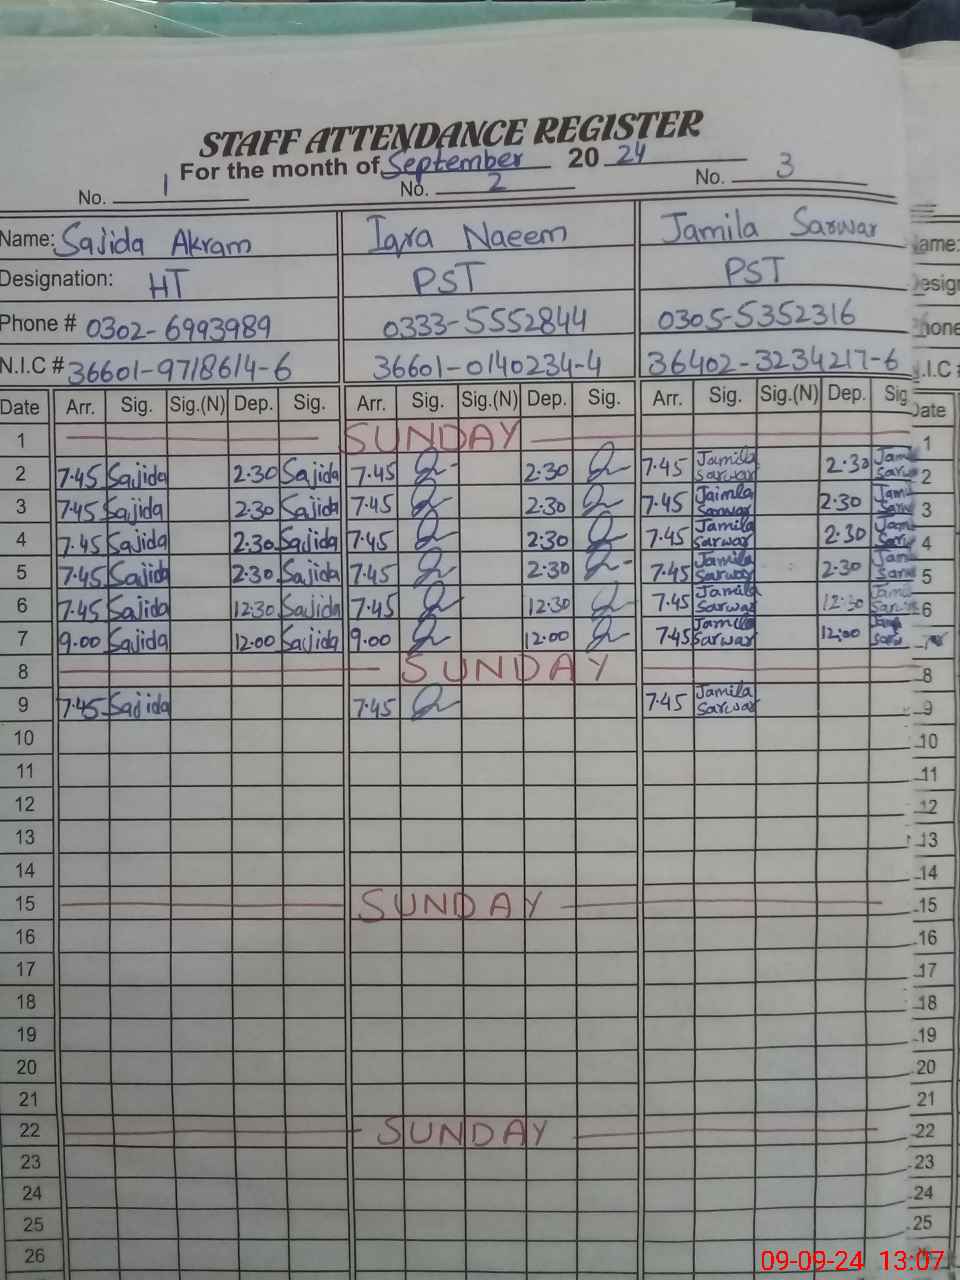 STAFF ATTENDANCE REGISTER
For the month of September 20 24
No. 1 No. 2 No. 3
Name: Sajida Akram Iqra Naeem Jamila Sarwar
Designation: HT PST PST
Phone # 0302-6993989 0333-5552844 0305-5352316
N.I.C # 36601-9718614-6 36601-0140234-4 36402-3234217-6
Date Arr. Sig. Sig.(N) Dep. Sig. Arr. Sig. Sig.(N) Dep. Sig. Arr. Sig. Sig.(N) Dep. Sig Date
1 SUNDAY 1
2 7.45 Sajida 2.30 Sajida 7.45 2.30 7.45 Jamila Sarwar 2.30 2
3 7.45 Sajida 2.30 Sajida 7.45 2.30 7.45 Jaimla Sarwar 2.30 3
4 7.45 Sajida 2.30 Sajida 7.45 2.30 7.45 Jamila Sarwar 2.30 4
5 7.45 Sajida 2.30 Sajida 7.45 2.30 7.45 Jamila Sarwar 2.30 5
6 7.45 Sajida 12.30 Sajida 7.45 12.30 7.45 Jamila Sarwar 12.30 6
7 9.00 Sajida 12.00 Sajida 9.00 12.00 7.45 Jamila Sarwar 12.00 7
8 SUNDAY 8
9 7.45 Sajida 7.45 7.45 Jamila Sarwar 9
10 10
11 11
12 12
13 13
14 14
15 SUNDAY 15
16 16
17 17
18 18
19 19
20 20
21 21
22 SUNDAY 22
23 23
24 24
25 25
26
09-09-24 13:07